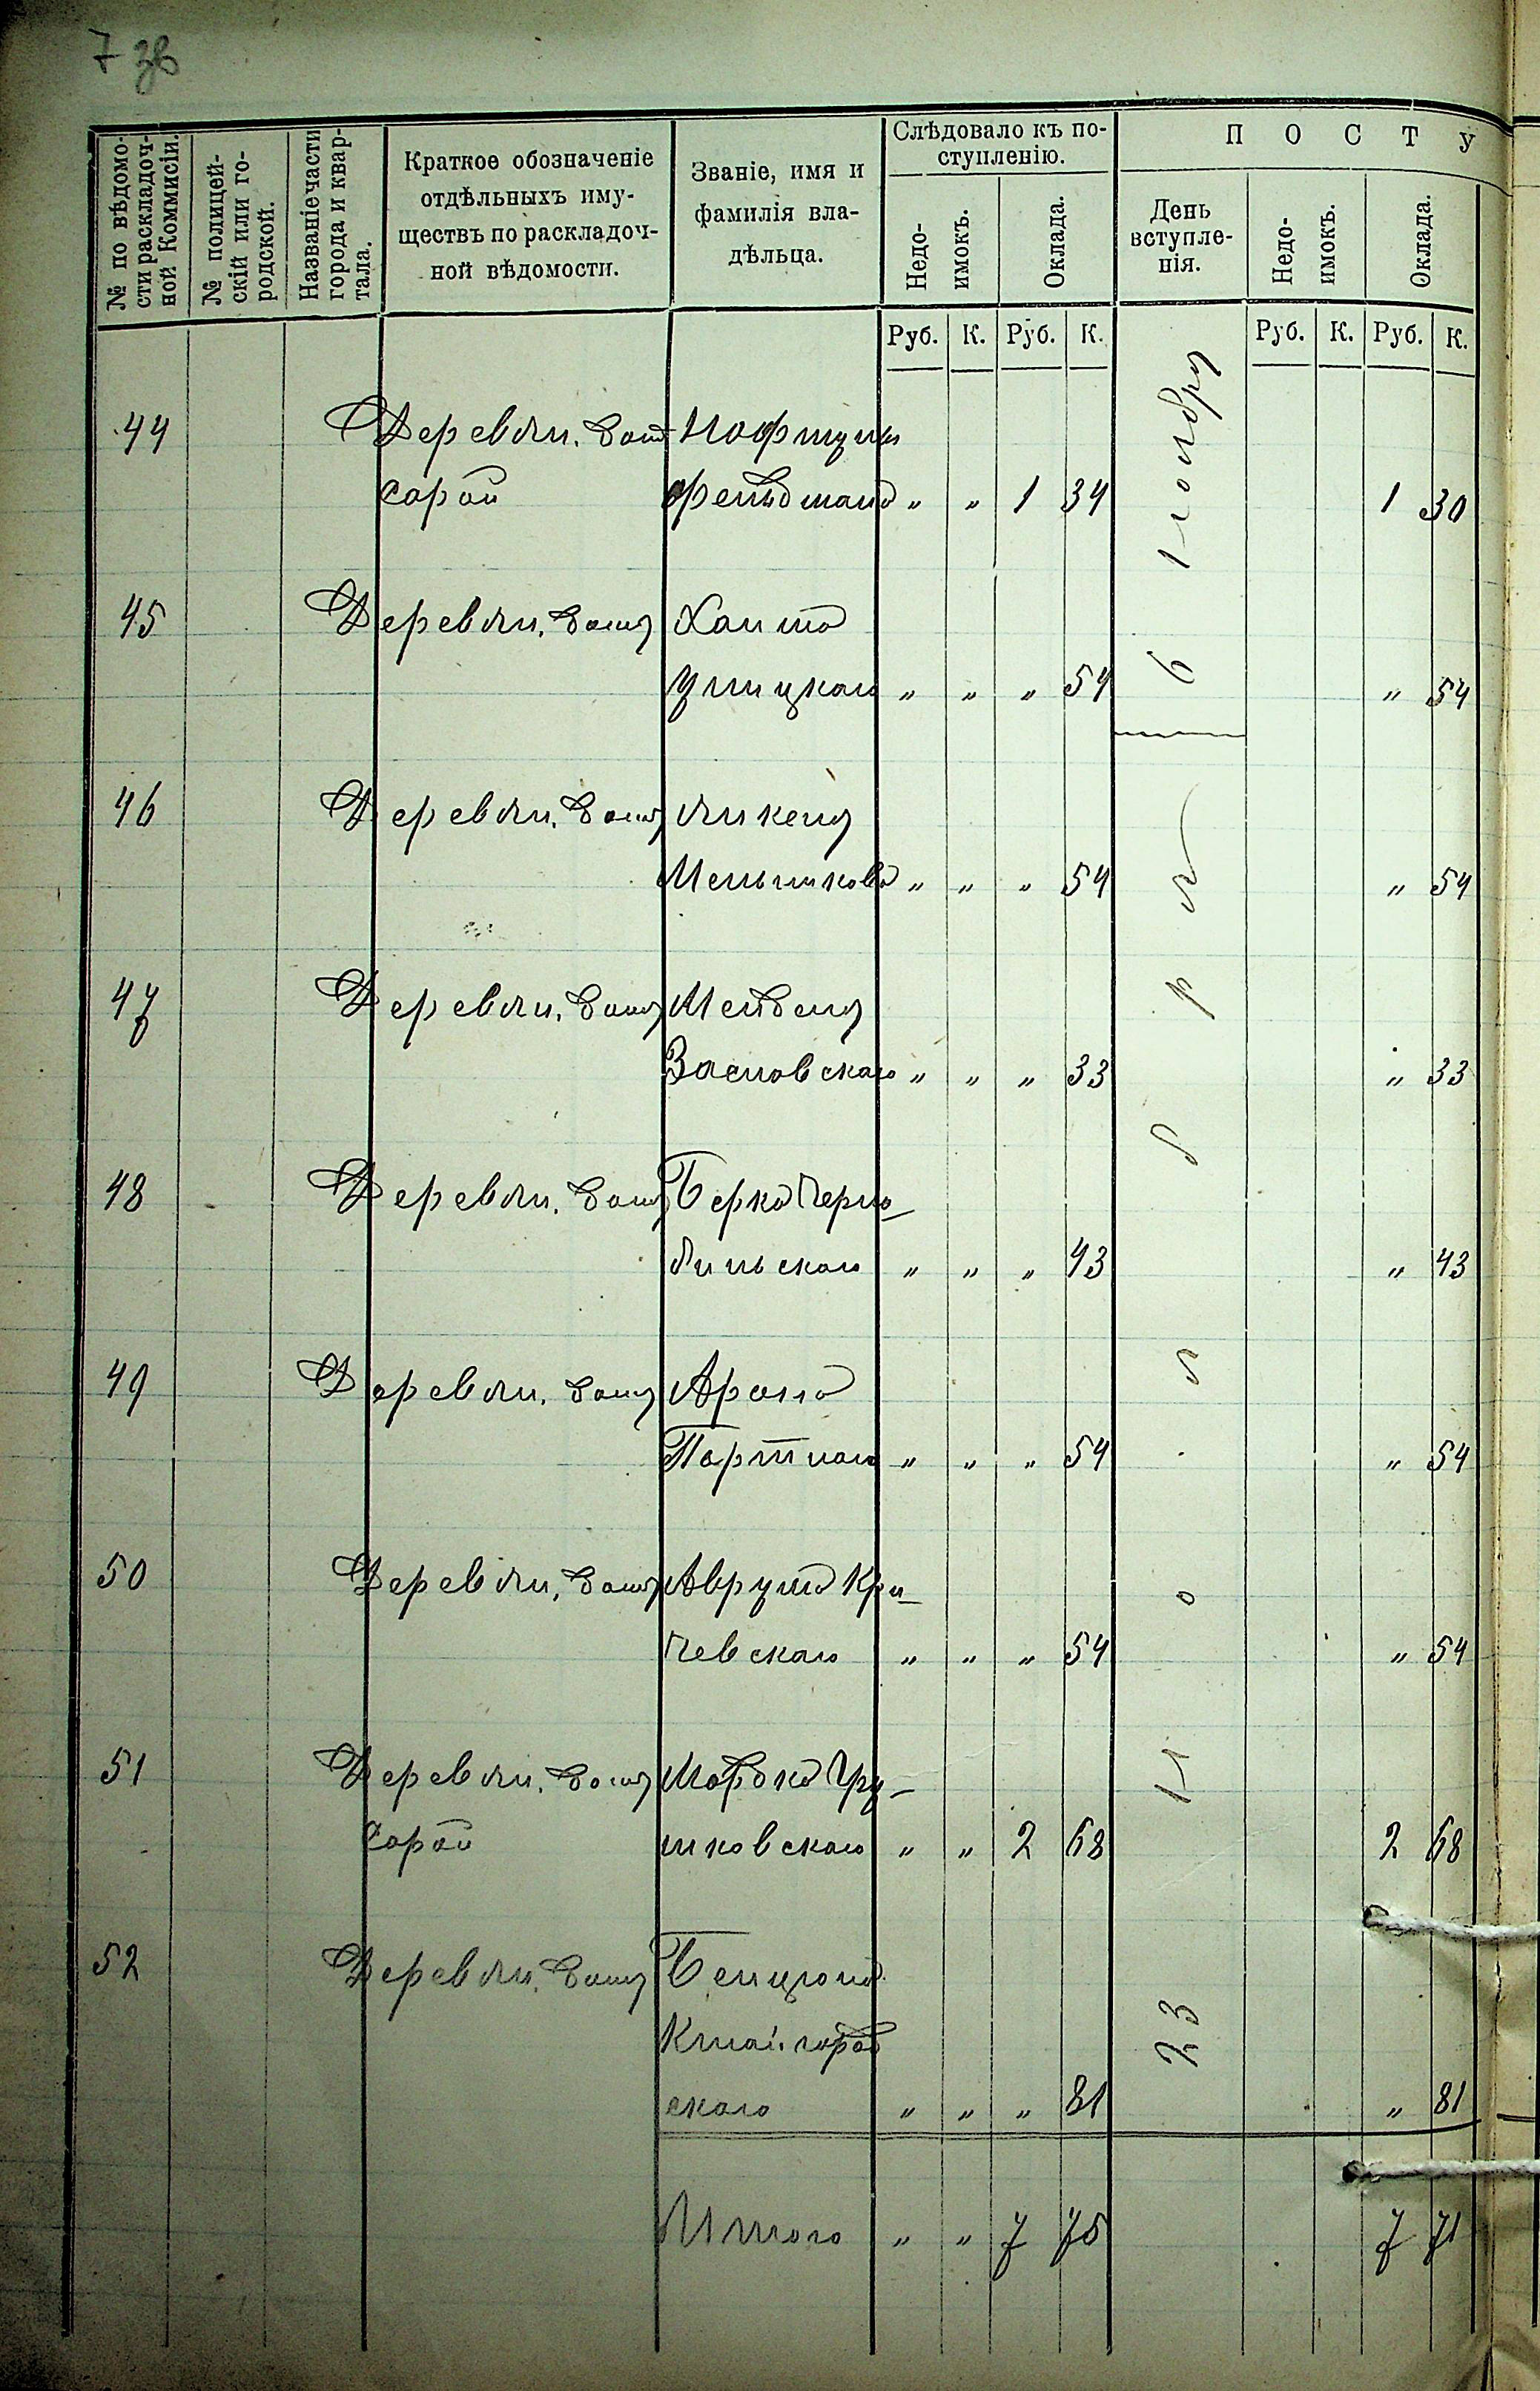 7 зв
№ по вѣдомо-
сти раскладоч-
ной Коммисіи.
№ полицей-
скій или го-
родской.
Названіе части
города и квар-
тала.
Краткое обозначеніе
отдѣльныхъ иму-
ществъ по раскладоч-
ной вѣдомости.
Званіе, имя и
фамилія вла-
дѣльца.
Слѣдовало къ по-
ступленію.
Недо-
имокъ.
Оклада.
ПОСТУ
День
вступле-
нія.
Недо-
имокъ.
Оклада.
Руб. К. Руб. К. Руб. К. Руб. К.
44 Деревян. домъ
сарай Фельдмана " " 1 34 1 30
45 Деревян. домъ Хаима
" " " 54 " 54
46 Деревян. домъ
Мельникова " " " 54 " 54
47 Деревян. домъ Мендель
Заславскаго " " " 33 " 33
48 Деревян. домъ Берка Черно-
быльскаго " " " 43 " 43
49 Деревян. домъ Арона
Портнаго " " " 54 " 54
50 Деревян. домъ Аврума Кри-
чевскаго " " " 54 " 54
51 Деревян. домъ Мордка Гру-
шковскаго
сарай " " 2 68 2 68
52 Деревян. домъ Бенціона
Китайгород
скаго " " " 81 " 81
Итого " " 7 75 7 71
6 ноября
23 ноября